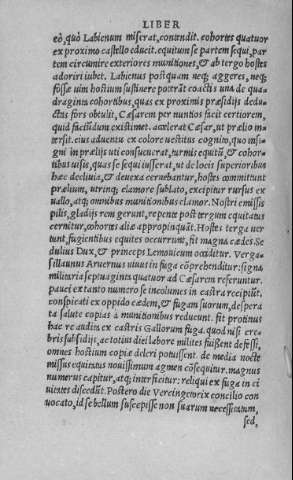 LIBER
eò, quò Labienum miserat, contendit. cohortes quatuor
ex proximo castello educit. equitum se partem sequi, par
tem circumire exteriores munitiones, & ab tergo hostes
adoriri iubet. Labienus postquam neq; aggeres, neq;
fossæ uim hostium sustinere poterãt coactis una de qua
draginta cohortibus, quas ex proximis præsidijs dedu
ctas fors obtulit, Cæsarem per nuntios facit certiorem,
quid faciundum existimet. accelerat Cæsar, ut prælio in
tersit. eius aduentu ex colore uestitus cognito, quo insi
gni in prælijs uti consueuerat, turmis equitũ, & cohor
tibus uisis, quas se sequi iusserat, ut de locis superioribus
hæc decliuia, & deuexa cernebantur, hostes committunt
prælium, utrinq; clamore sublato, excipitur rursus ex
uallo, atq; omnibus munitionibus clamor. Nostri emissis
pilis, gladijs rem gerunt, repente post tergum equitatus
cernitur, cohortes aliæ appropinquãt. Hostes terga uer
tunt, fugientibus equites occurrunt, fit magna cædes. Se
dulius Dux, & princeps Lemouicum occiditur. Verga
sillaunus Aruernus uiuus in fuga cõprehenditur: signa
militaria septuaginta quatuor ad Cæsarem referuntur.
pauci ex tanto numero se incolumes in castra recipiũt.
conspicati ex oppido cædem, & fugam suorum, despera
ta salute copias à munitionibus reducunt. fit protinus
hac re audita ex castris Gallorum fuga. quod nisi cre=
bris subsidijs, ac totius diei labore milites fuissent defessi,
omnes hostium copiæ deleri potuissent. de media nocte
missus equitatus nouissimum agmen cõsequitur. magnus
numerus capitur, atq; interficitur: reliqui ex fuga in ci
uitates discedũt. Postero die Vercingetorix concilio con
uocato, id se bellum suscepisse non suarum necessitatum,
sed,